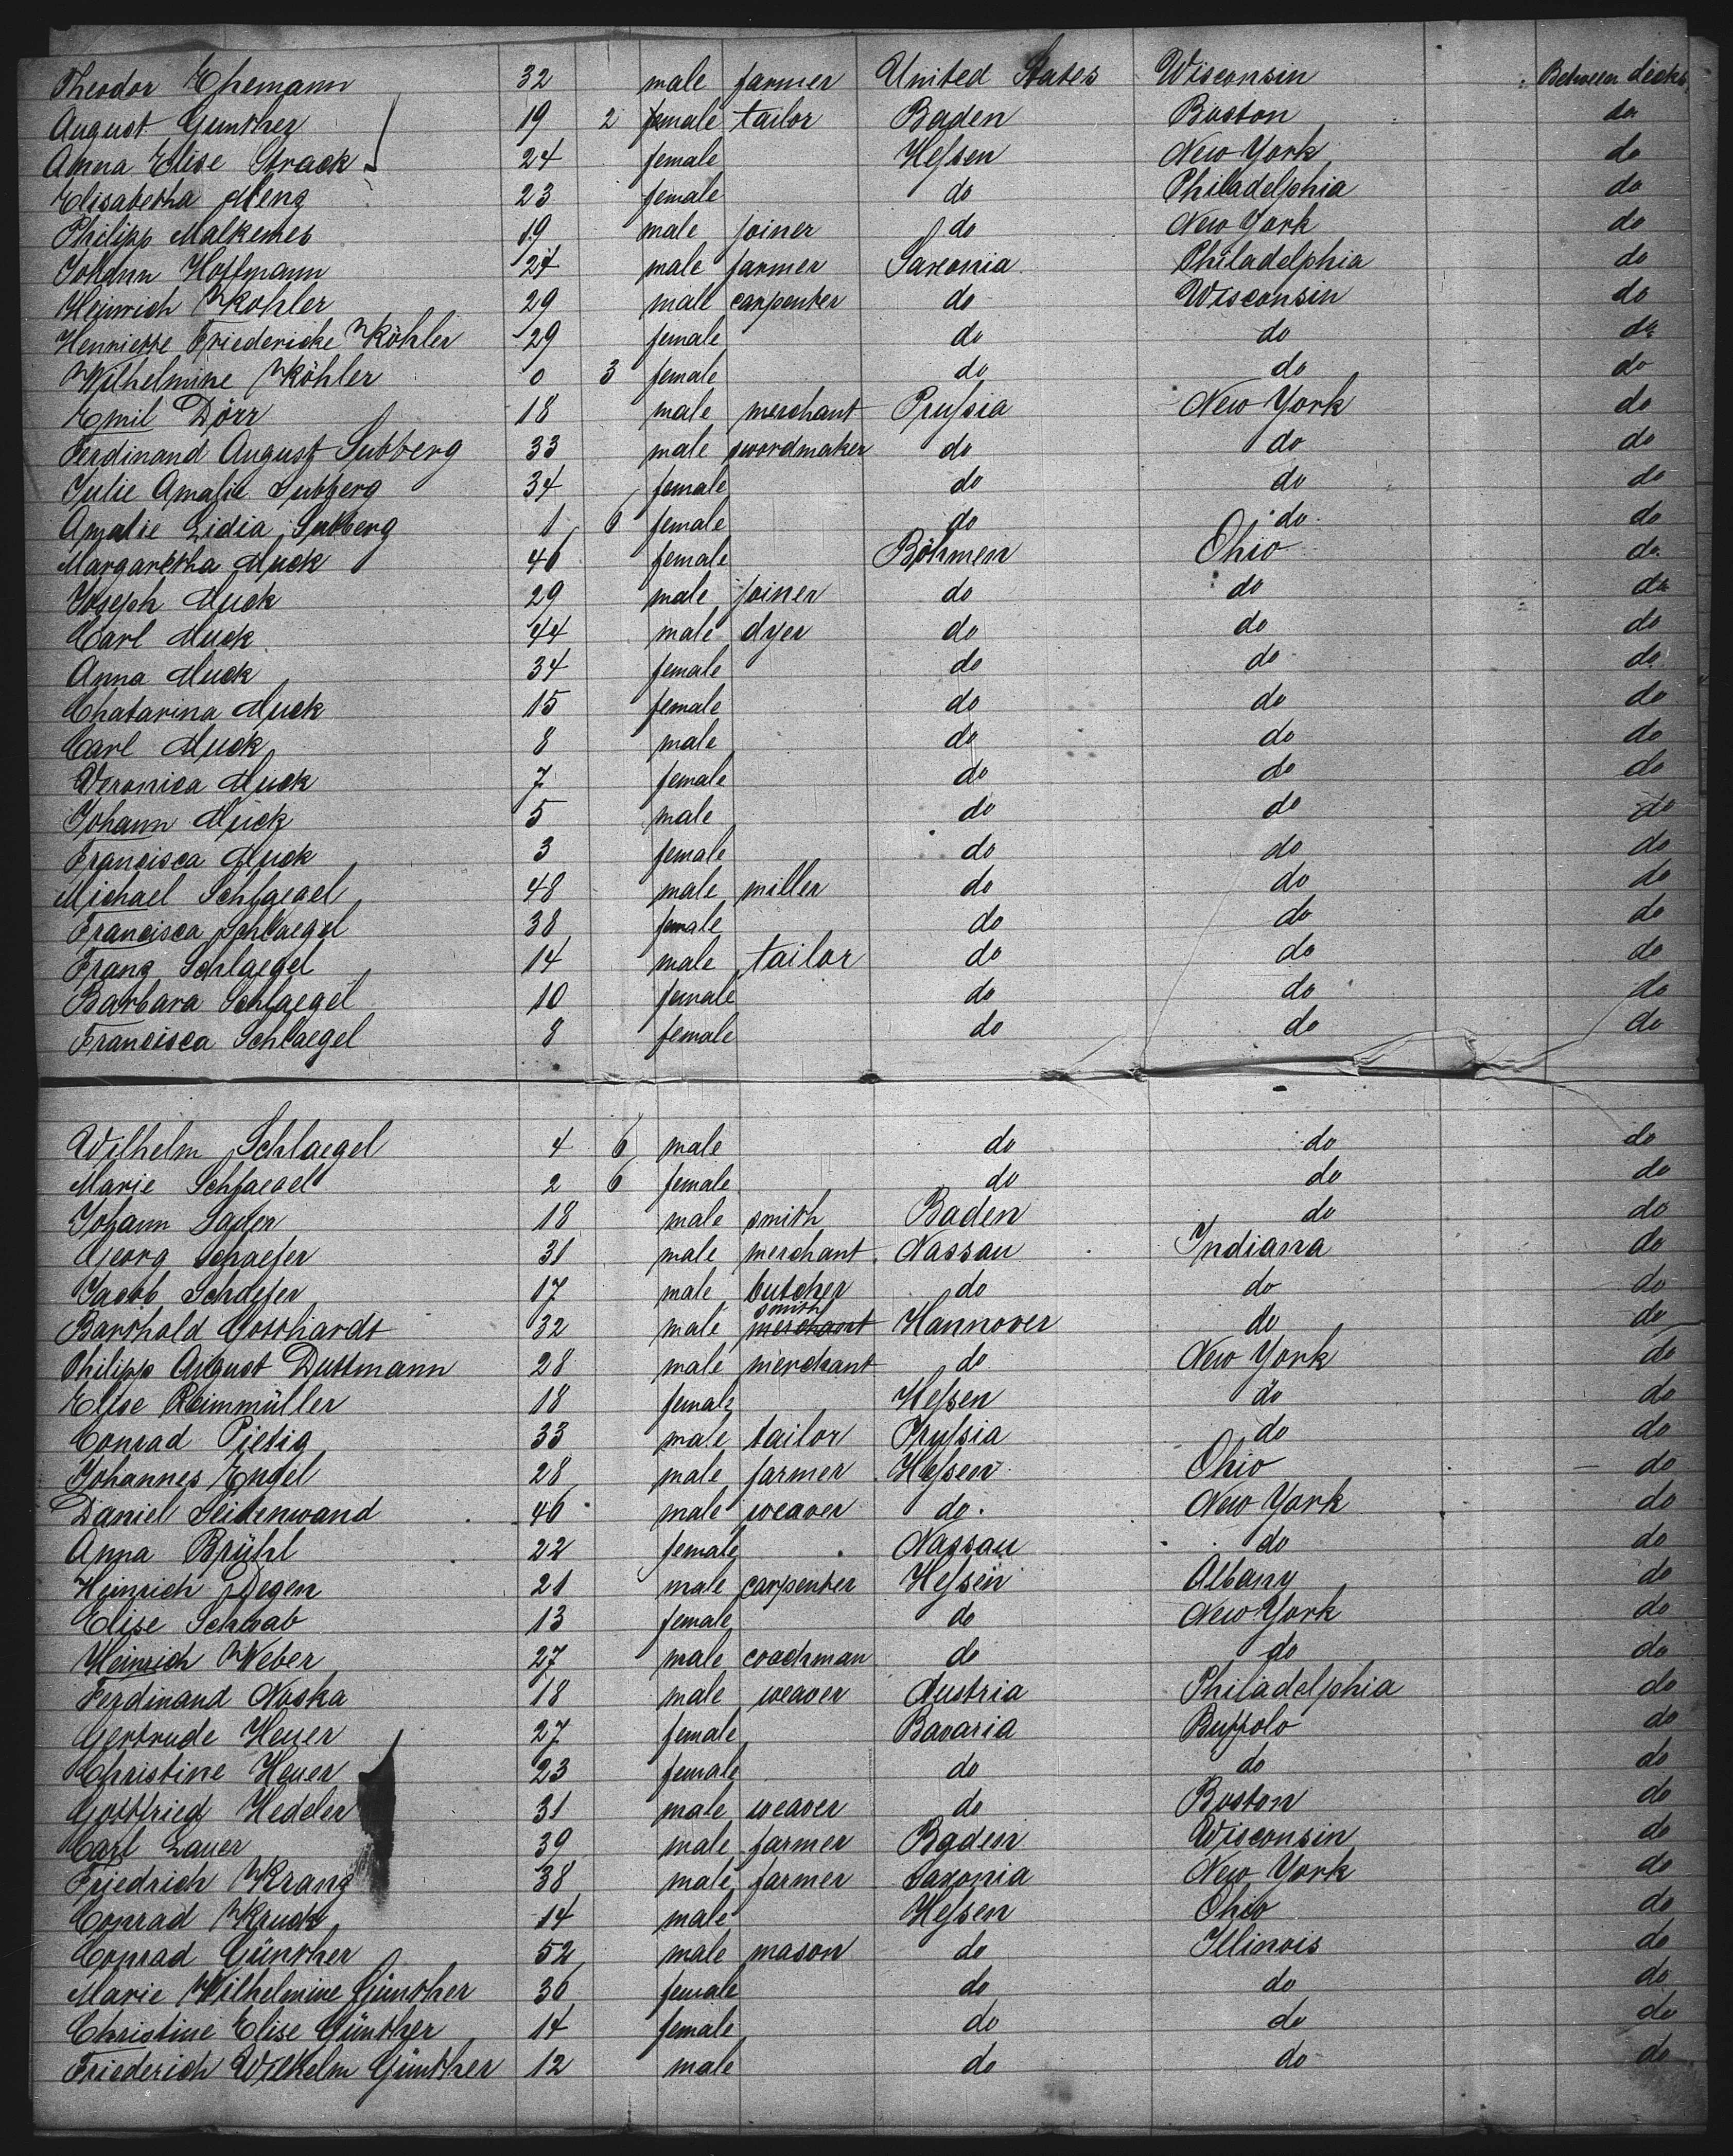 Theodor Ehemann 32 male farmer United States Wisconsin Between decks
August Gunther 19 2 male tailor Baden Boston do
Anna Elise Strack 24 female Hessen New York do
Elisabetha Meng 23 female do Philadelphia do
Philipp Malkemes 19 male joiner do New York do
Johann Hoffmann 27 male farmer Saxonia Philadelphia do
Heinrich Köhler 29 male carpenter do Wisconsin do
Henriette Friedericke Köhler 29 female do do do
Wilhelmine Köhler 0 3 female do do do
Emil Dörr 18 male merchant Prussia New York do
Ferdinand August Lubberg 33 male swordmaker do do do
Julie Amalie Lubberg 34 female do do do
Amalie Lidia Lubberg 1 6 female do do do
Margaretha Muck 46 female Böhmen Ohio do
Joseph Muck 29 male joiner do do do
Carl Muck 44 male dyer do do do
Anna Muck 34 female do do do
Chatarina Muck 15 female do do do
Carl Muck 8 male do do do
Veronica Muck 7 female do do do
Johann Muck 5 male do do do
Francisca Muck 3 female do do do
Michael Schlaegel 48 male miller do do do
Francisca Schlaegel 38 female do do do
Franz Schlaegel 14 male tailor do do do
Barbara Schlaegel 10 female do do do
Francisca Schlaegel 8 female do do do
Wilhelm Schlaegel 4 6 male do do do
Marie Schlaegel 2 6 female do do do
Johann Sauer 18 male smith Baden do do
Georg Schaefer 31 male merchant Nassau Indiana do
Jacob Schaefer 17 male butcher do do do
Barthold Gotthardt 32 male smith merchant Hannover do do
Philipp August Duttmann 28 male merchant do New York do
Elise Reimmüller 18 female Hessen do do
Conrad Pietig 33 male tailor Prussia do do
Johannes Engel 28 male farmer Hessen Ohio do
Daniel Seidenwand 46 male weaver do New York do
Anna Brühl 22 female Nassau do do
Heinrich Degen 21 male carpenter Hessen Albany do
Elise Schwab 13 female do New York do
Heinrich Weber 27 male coachman do do do
Ferdinand Noska 18 male weaver Austria Philadelphia do
Gertrude Heuer 27 female Bavaria Buffolo do
Christine Heuer 23 female do do do
Gottfried Hedeler 31 male weaver do Boston do
Carl Lauer 39 male farmer Baden Wisconsin do
Friedrich Kranz 38 male farmer Saxonia New York do
Conrad Kruck 14 male Hessen Ohio do
Conrad Günther 52 male mason do Illinois do
Marie Wilhelmine Günther 36 female do do do
Christine Elise Günther 14 female do do do
Friederich Wilhelm Günther 12 male do do do